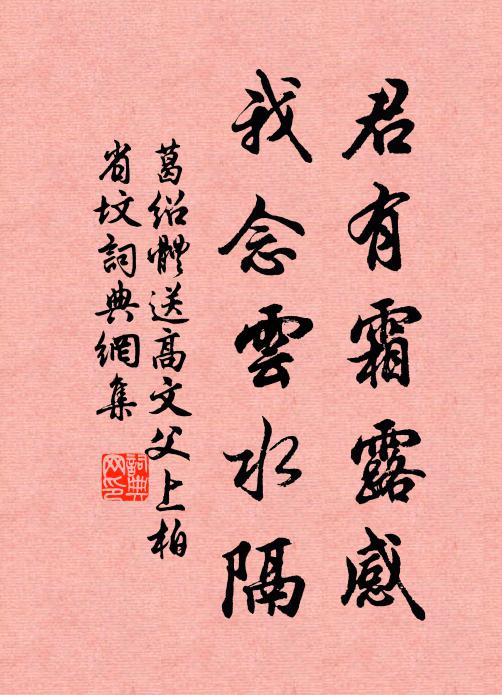 君有霜露感
我念雲水隔
葛绍體送高文父上柏
省墳詞典網集
詞典網印